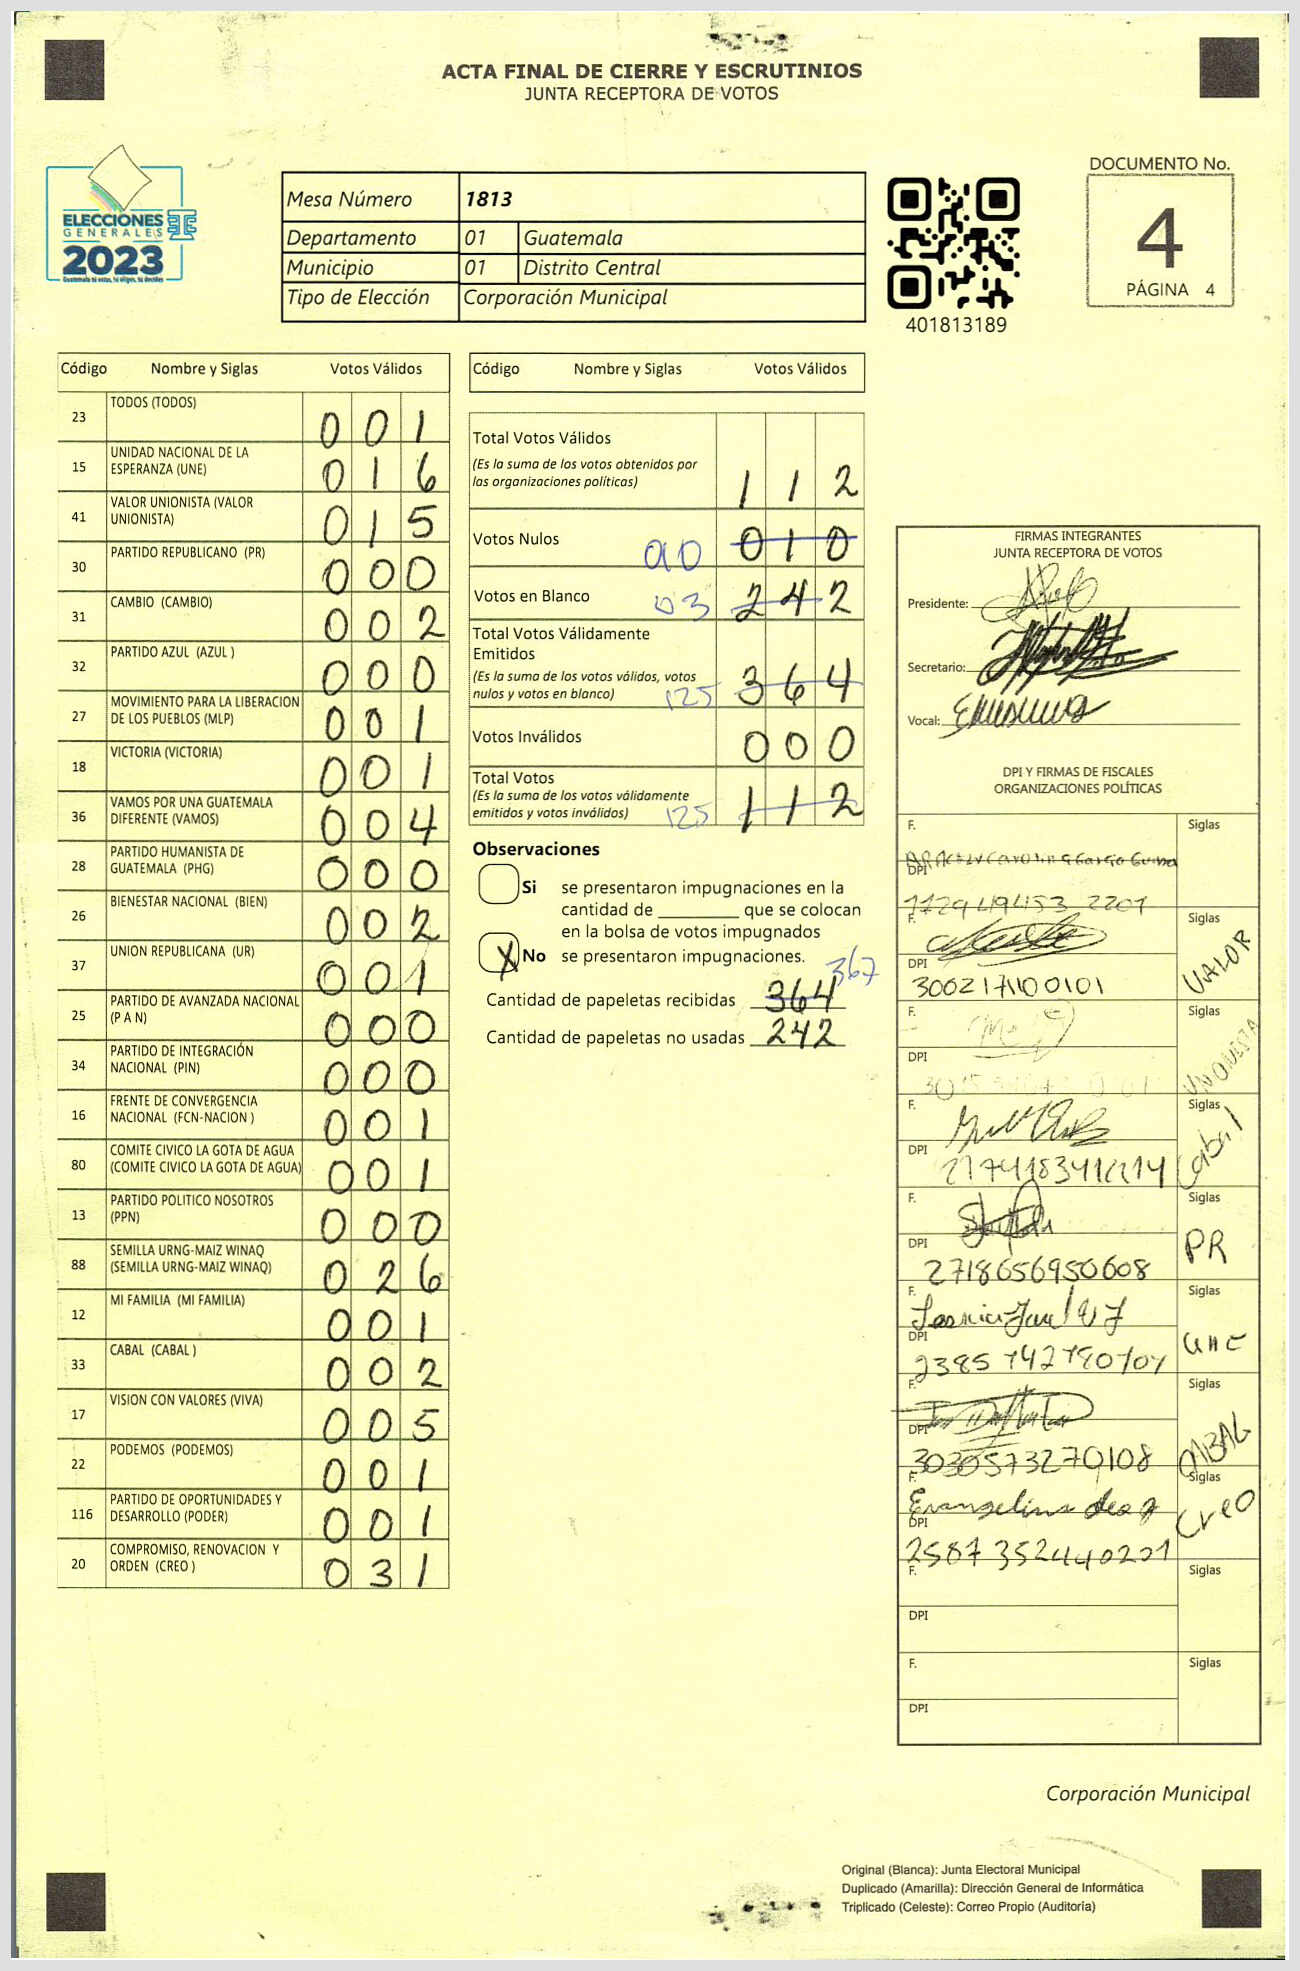 ACTA FINAL DE CIERRE Y ESCRUTINIOS
JUNTA RECEPTORA DE VOTOS
ELECCIONES
GENERALES
2023
Mesa Número 1813
Departamento 01 Guatemala
Municipio 01 Distrito Central
Tipo de Elección Corporación Municipal
401813189
DOCUMENTO No.
4
PÁGINA 4
Código Nombre y Siglas Votos Válidos
23 TODOS (TODOS) 0 0 1
15 UNIDAD NACIONAL DE LA
ESPERANZA (UNE) 0 1 6
41 VALOR UNIONISTA (VALOR
UNIONISTA) 0 1 5
30 PARTIDO REPUBLICANO (PR) 0 0 0
31 CAMBIO (CAMBIO) 0 0 2
32 PARTIDO AZUL (AZUL ) 0 0 0
27 MOVIMIENTO PARA LA LIBERACION
DE LOS PUEBLOS (MLP) 0 0 1
18 VICTORIA (VICTORIA) 0 0 1
36 VAMOS POR UNA GUATEMALA
DIFERENTE (VAMOS) 0 0 4
28 PARTIDO HUMANISTA DE
GUATEMALA (PHG) 0 0 0
26 BIENESTAR NACIONAL (BIEN) 0 0 2
37 UNION REPUBLICANA (UR) 0 0 1
25 PARTIDO DE AVANZADA NACIONAL
(P A N) 0 0 0
34 PARTIDO DE INTEGRACIÓN
NACIONAL (PIN) 0 0 0
16 FRENTE DE CONVERGENCIA
NACIONAL (FCN-NACION ) 0 0 1
80 COMITE CIVICO LA GOTA DE AGUA
(COMITE CIVICO LA GOTA DE AGUA) 0 0 1
13 PARTIDO POLITICO NOSOTROS
(PPN) 0 0 0
88 SEMILLA URNG-MAIZ WINAQ
(SEMILLA URNG-MAIZ WINAQ) 0 2 6
12 MI FAMILIA (MI FAMILIA) 0 0 1
33 CABAL (CABAL ) 0 0 2
17 VISION CON VALORES (VIVA) 0 0 5
22 PODEMOS (PODEMOS) 0 0 1
116 PARTIDO DE OPORTUNIDADES Y
DESARROLLO (PODER) 0 0 1
20 COMPROMISO, RENOVACION Y
ORDEN (CREO ) 0 3 1
Código Nombre y Siglas Votos Válidos
Total Votos Válidos
(Es la suma de los votos obtenidos por
las organizaciones políticas) 1 1 2
Votos Nulos 0 1 0
Votos en Blanco 03 2 4 2
Total Votos Válidamente
Emitidos
(Es la suma de los votos válidos, votos
nulos y votos en blanco) 125 3 6 4
Votos Inválidos 0 0 0
Total Votos
(Es la suma de los votos válidamente
emitidos y votos inválidos) 125 1 1 2
Observaciones
Si se presentaron impugnaciones en la
cantidad de ________ que se colocan
en la bolsa de votos impugnados
X No se presentaron impugnaciones.
367
Cantidad de papeletas recibidas 364
Cantidad de papeletas no usadas 242
FIRMAS INTEGRANTES
JUNTA RECEPTORA DE VOTOS
Presidente:
Secretario:
Vocal:
DPI Y FIRMAS DE FISCALES
ORGANIZACIONES POLÍTICAS
F. Siglas
DPI
F. Siglas
VALOR
DPI
3002171100101
F. Siglas
UNIONISTA
DPI
F. Siglas
Cabal
DPI
F. Siglas
PR
DPI
2718656950608
F. Siglas
UNE
DPI
F. Siglas
CABAL
DPI
3030573270108
F. Siglas
Evangelina
Creo
DPI
2587 352440201
F. Siglas
DPI
F. Siglas
DPI
Corporación Municipal
Original (Blanca): Junta Electoral Municipal
Duplicado (Amarilla): Dirección General de Informática
Triplicado (Celeste): Correo Propio (Auditoría)